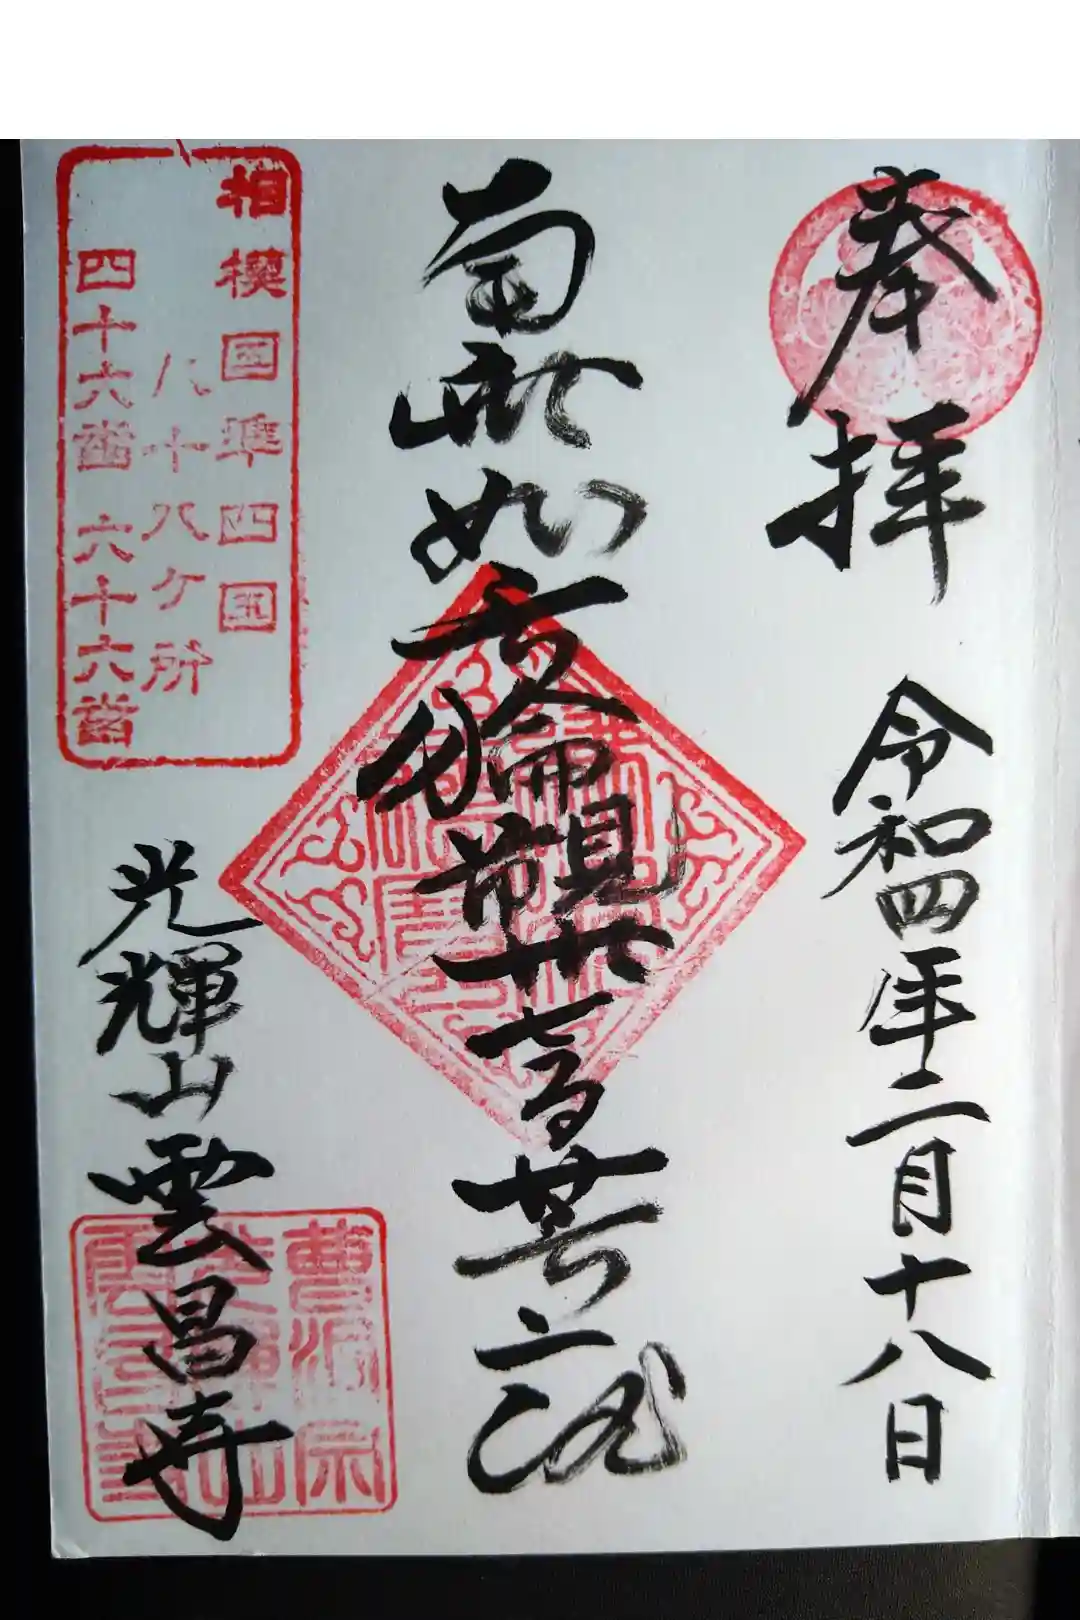 奉拝
令和四年二月十八日
南無如意輪観世音菩薩
光輝山雲昌寺
相模国準四国
八十八ケ所
四十六番 六十六番
曹洞宗
光輝山
雲昌寺